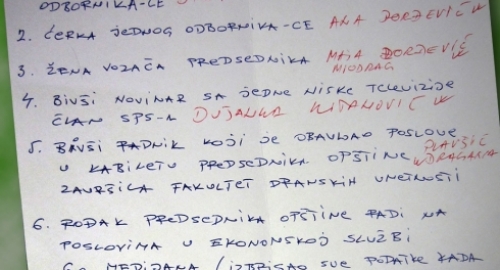 ODBORNIKA-CE
2. ĆERKA JEDNOG ODBORNIKA-CE ANA ĐORĐEVIĆ
3. ŽENA VOZAČA PREDSEDNIKA MAJA ĐORĐEVIĆ
MIODRAG
4. BIVŠI NOVINAR SA JEDNE NIŠKE TELEVIZIJE
ČLAN SPS-A DUŠANKA
5. BIVŠI RADNIK KOJI JE OBAVLJAO POSLOVE
U KABINETU PREDSEDNIKA OPŠTINE DRAGANA
ZAVRŠILA FAKULTET DRAMSKIH UMETNOSTI
6. ROĐAK PREDSEDNIKA OPŠTINE RADI NA
POSLOVIMA U EKONOMSKOJ SLUŽBI
MEDIJANA (IZBRISAO SVE PODATKE KADA